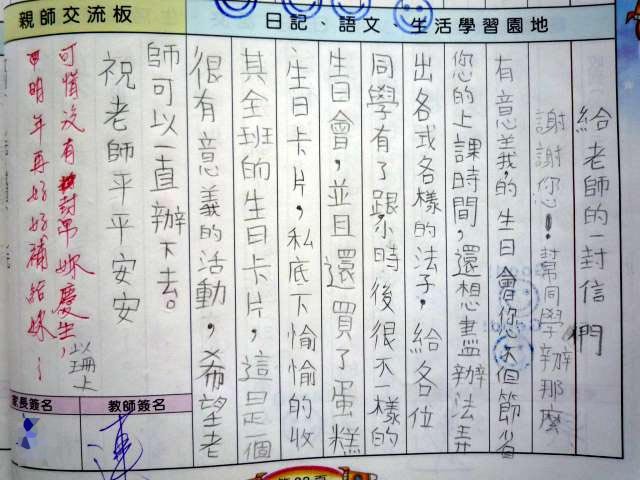 親師交流板
日記、語文、生活學習園地
給老師的一封信
謝謝您！幫同學們辦那麼
有意義的生日會您不但節省
您的上課時間，還想盡辦法弄
出各式各樣的法子，給各位
同學有了跟小時後很不一樣的
生日會，並且還買了蛋糕
、生日卡片，私底下愉愉的收
其全班的生日卡片，這是一個
很有意義的活動，希望老
師可以一直辦下去。
祝老師平平安安
以珊上
可惜沒有幫妳慶生，
明年再好好補給妳！
家長簽名
教師簽名